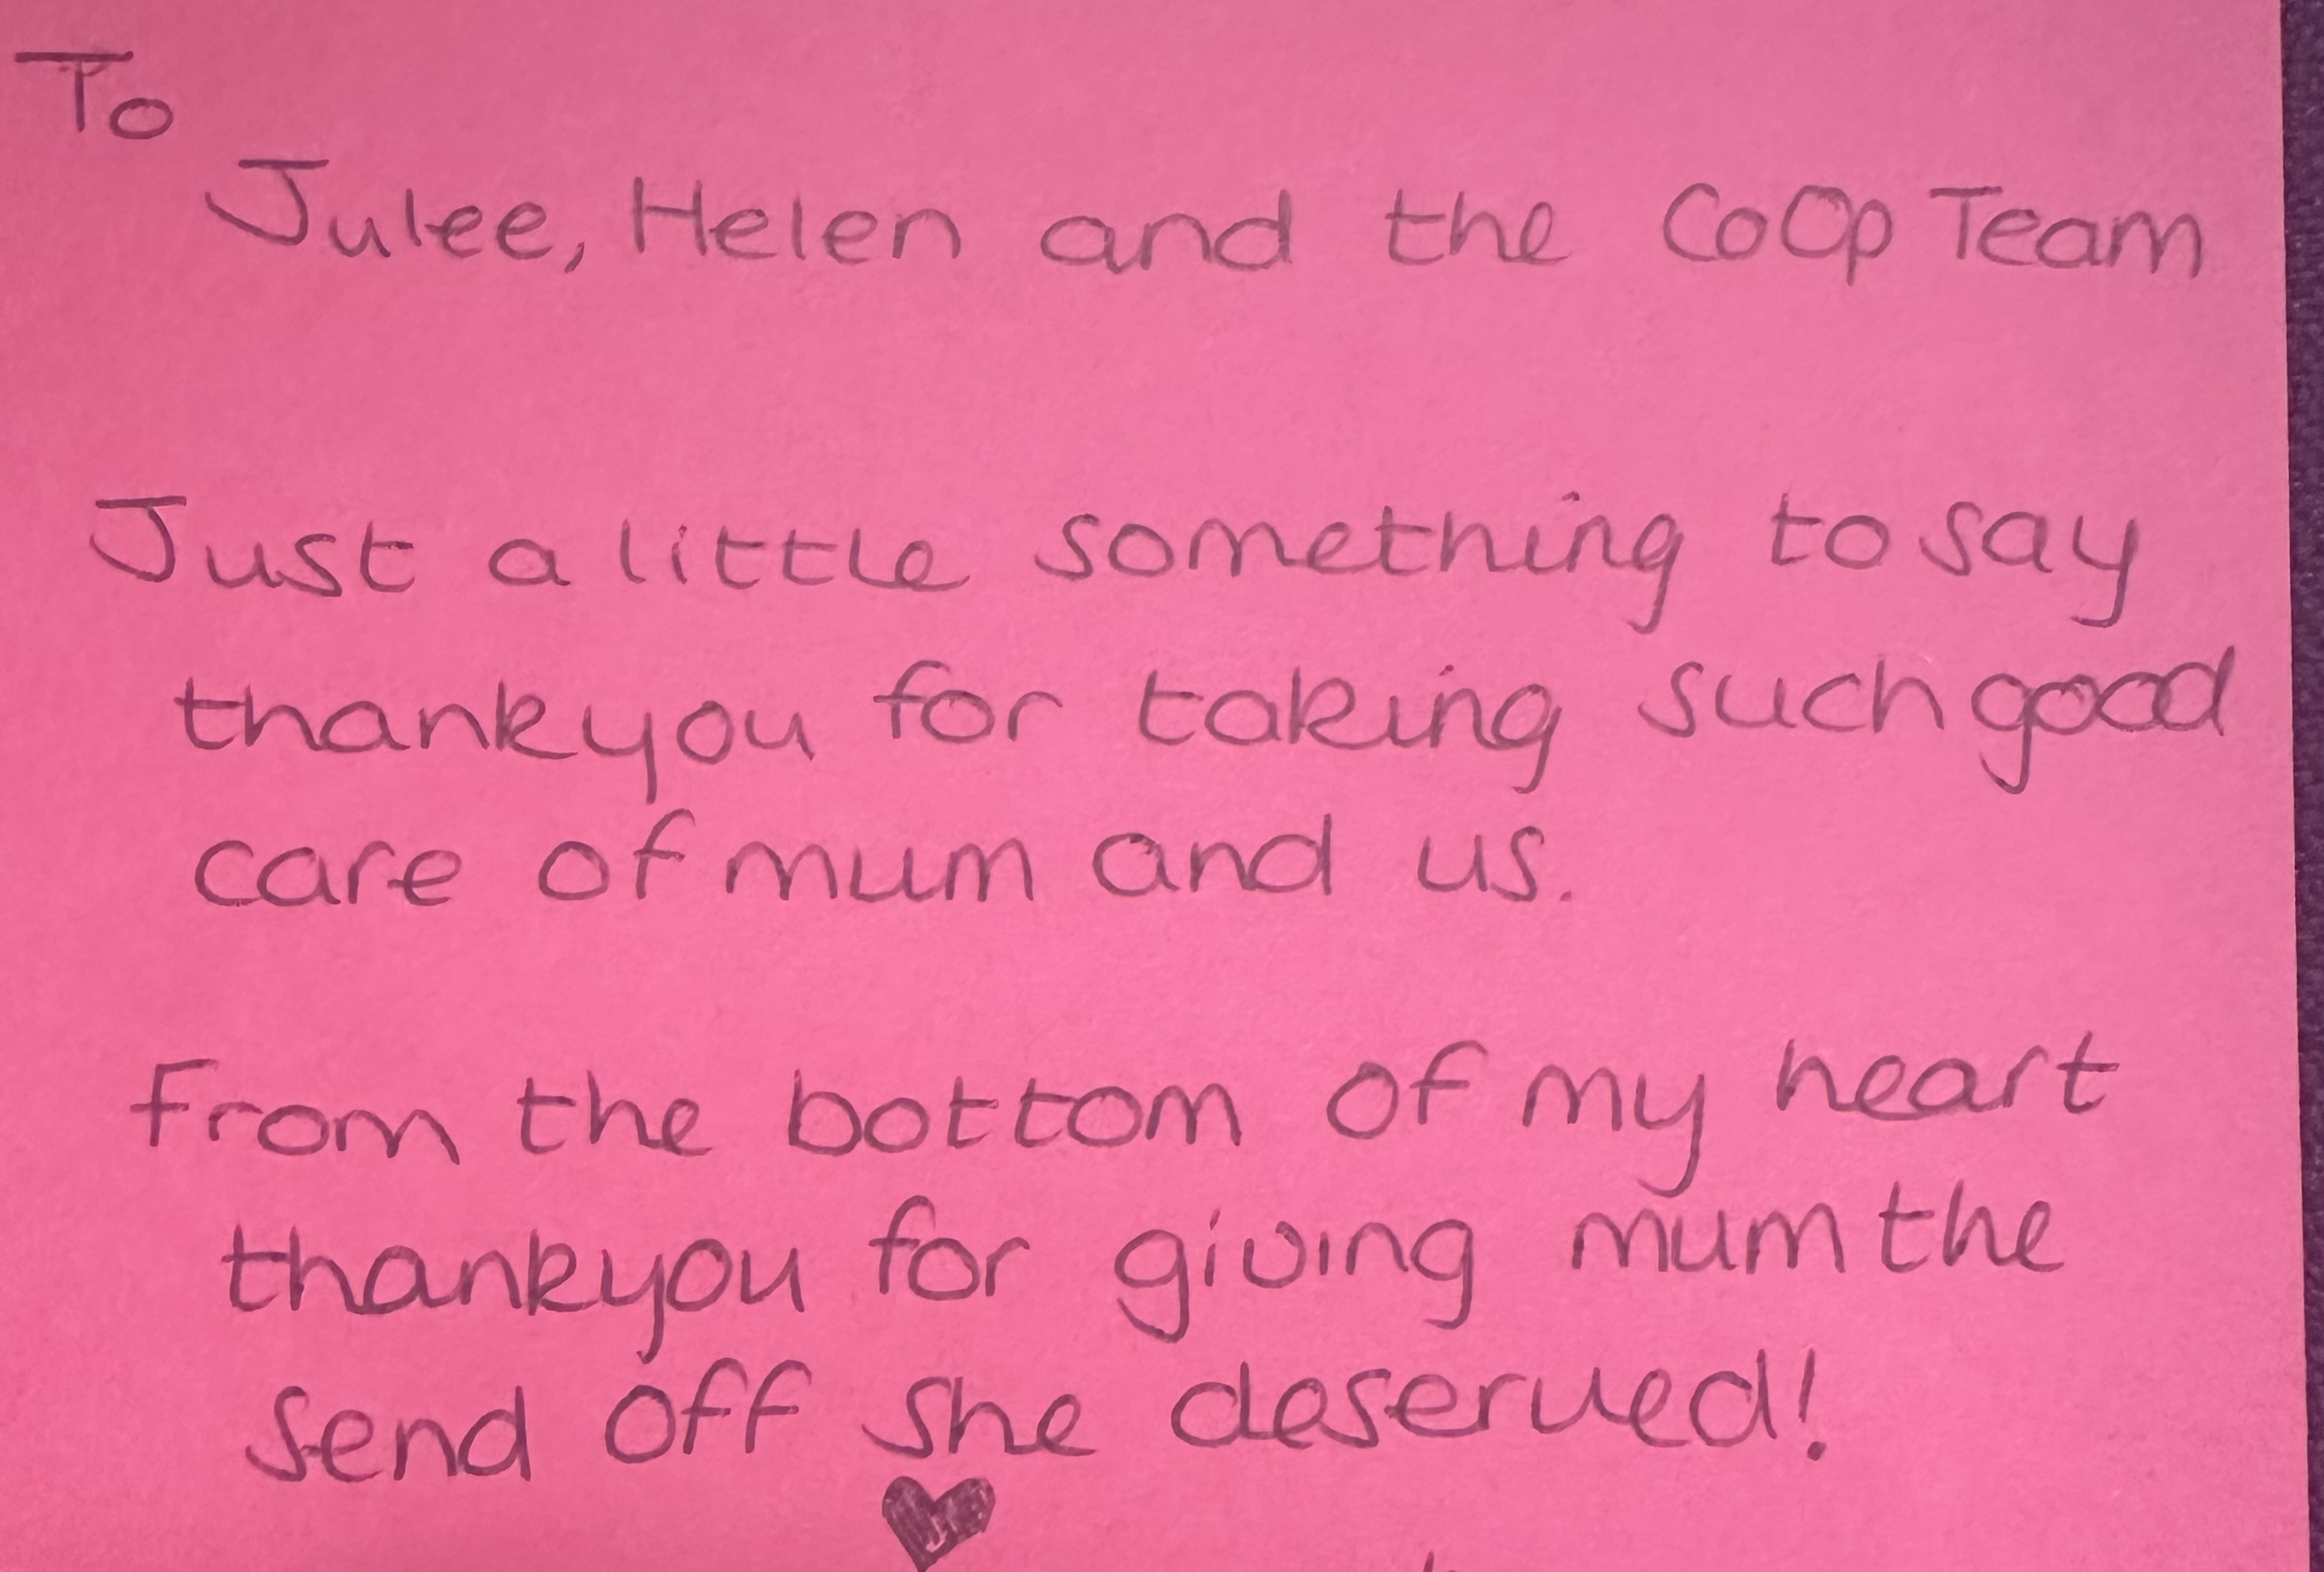 To
Julee, Helen and the CoOp Team
Just a little something to say
thankyou for taking such good
care of mum and us.
From the bottom of my heart
thankyou for giving mum the
send off she deserved!